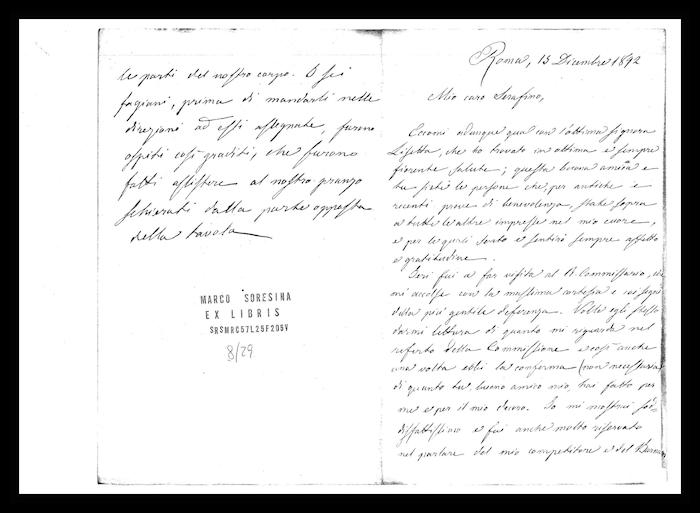 le parti del nostro corpo. I sei
fagiani, prima di mandarli nelle
direzioni ad essi assegnate, furono
ospiti così graditi, che furono
fatti assistere al nostro pranzo
schierati dalla parte opposta
della tavola
MARCO SORESINA
EX LIBRIS
SRSMRC57L25F205V
8/29
Roma, 13 Dicembre 1892
Mio caro Serafino,
Eccomi adunque qua con l'ottima signora
Lisetta, che ho trovato in ottima e sempre
fiorente salute; questa buona amica e
tu siete le persone che, per antiche e
recenti prove di benevolenza, state sopra
a tutte le altre impresse nel mio cuore,
e per le quali sento e sentirò sempre affetto
e gratitudine.
Ieri fui a far visita al R. Commissario, che
mi accolse con la massima cortesia e coi segni
della più gentile deferenza. Volle egli stesso
darmi lettura di quanto mi riguarda nel
referto della Commissione e così anche
una volta ebbi la conferma (non necessaria)
di quanto tu, buono amico mio, hai fatto per
me e per il mio decoro. Io mi mostrai sod-
disfattissimo e fui anche molto riservato
nel parlare del mio competitore e del